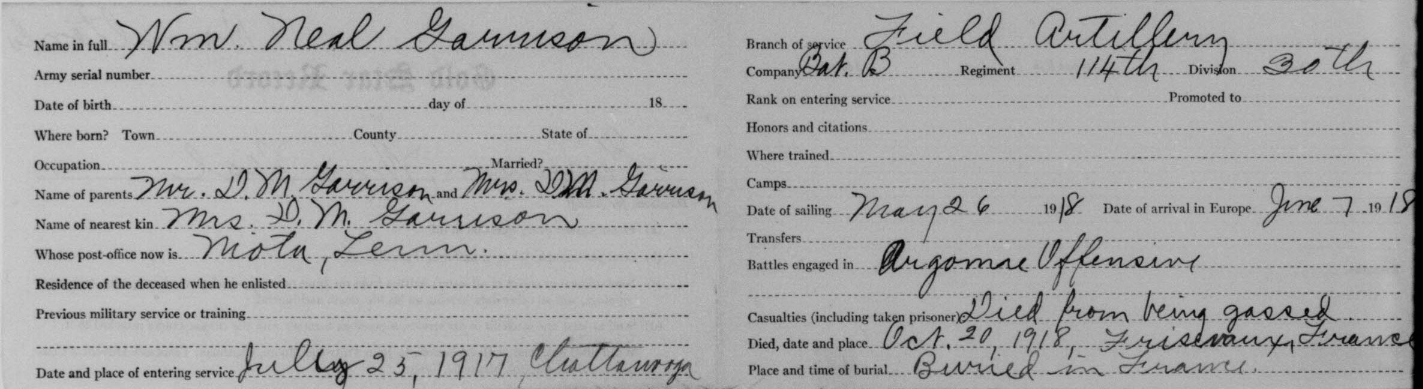 Name in full Wm. Neal Garrison
Army serial number
Date of birth day of 18
Where born? Town County State of
Occupation Married?
Name of parents Mr. D. M. Garrison and Mrs. D. M. Garrison
Name of nearest kin Mrs. D. M. Garrison
Whose post-office now is Mota, Tenn.
Residence of the deceased when he enlisted
Previous military service or training
Date and place of entering service July 25, 1917, Chattanooga
Branch of service Field Artillery
Company Bat. B Regiment 114th Division 30th
Rank on entering service Promoted to
Honors and citations
Where trained
Camps
Date of sailing May 26 1918 Date of arrival in Europe June 7 1918
Transfers
Battles engaged in Argonne Offensive
Casualties (including taken prisoner) Died from being gassed
Died, date and place Oct. 20, 1918, Frisevaux, France
Place and time of burial Buried in France.
Gold Star Record